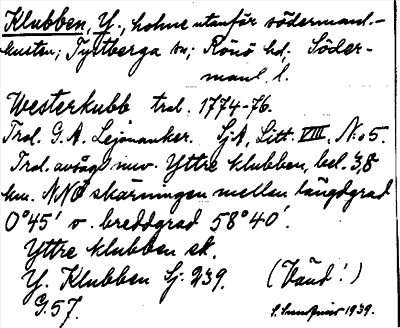 Klubben, Y., holme utanför södermanl.-
kusten; Tystberga sn; Rönö hd, Söder-
manl. l.
Westerkubb trol. 1774-76.
Trol. G. A. Lejonanker. SjA, Litt. VIII, N:o 5.
Trol. avsågs nuv. Yttre klubben, bel. 3,8
km. NNO skärningen mellan längdgrad
0°45' o. breddgrad 58°40'.
Yttre klubben ek.
Y. Klubben Sj: 239. (Vänd!)
G.57. 1939.